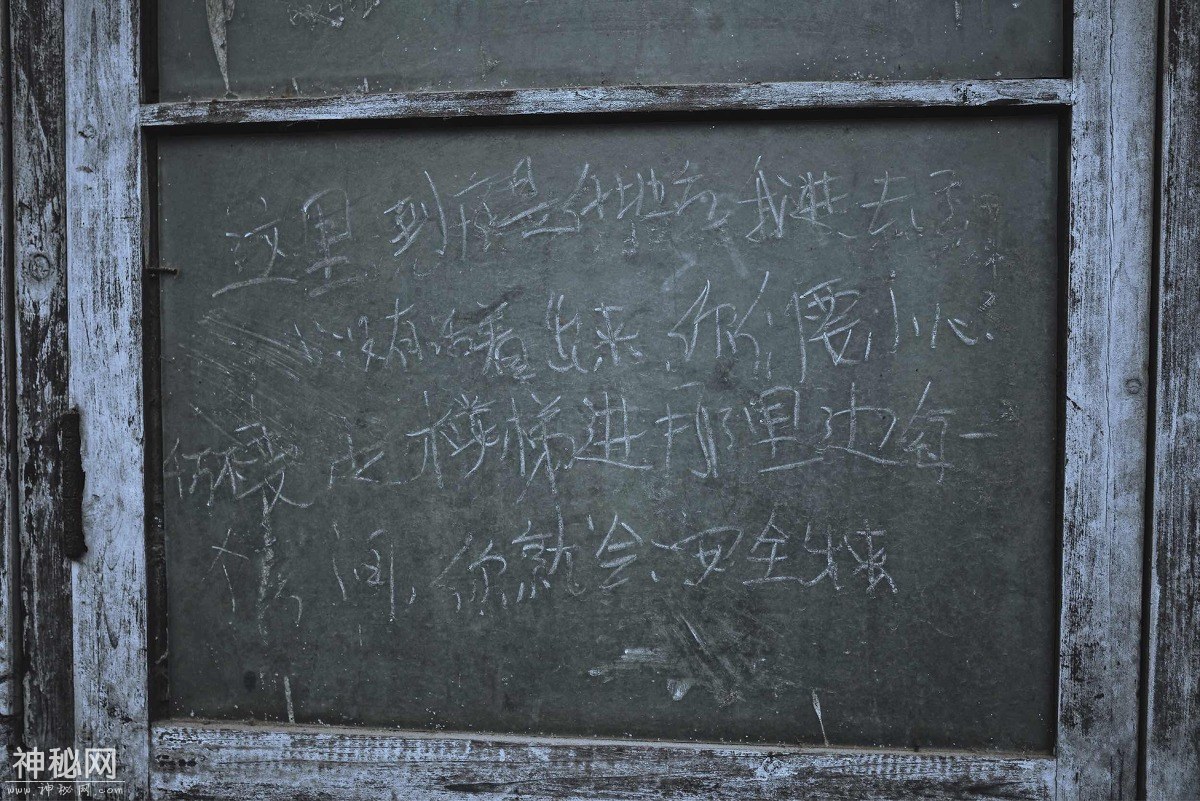 这里到底是什么地方我进去了
没有活着出来你们要小心.
你不要上楼梯进那里边每一
个房间,你就会安全出来
神秘网
www.神秘网.com